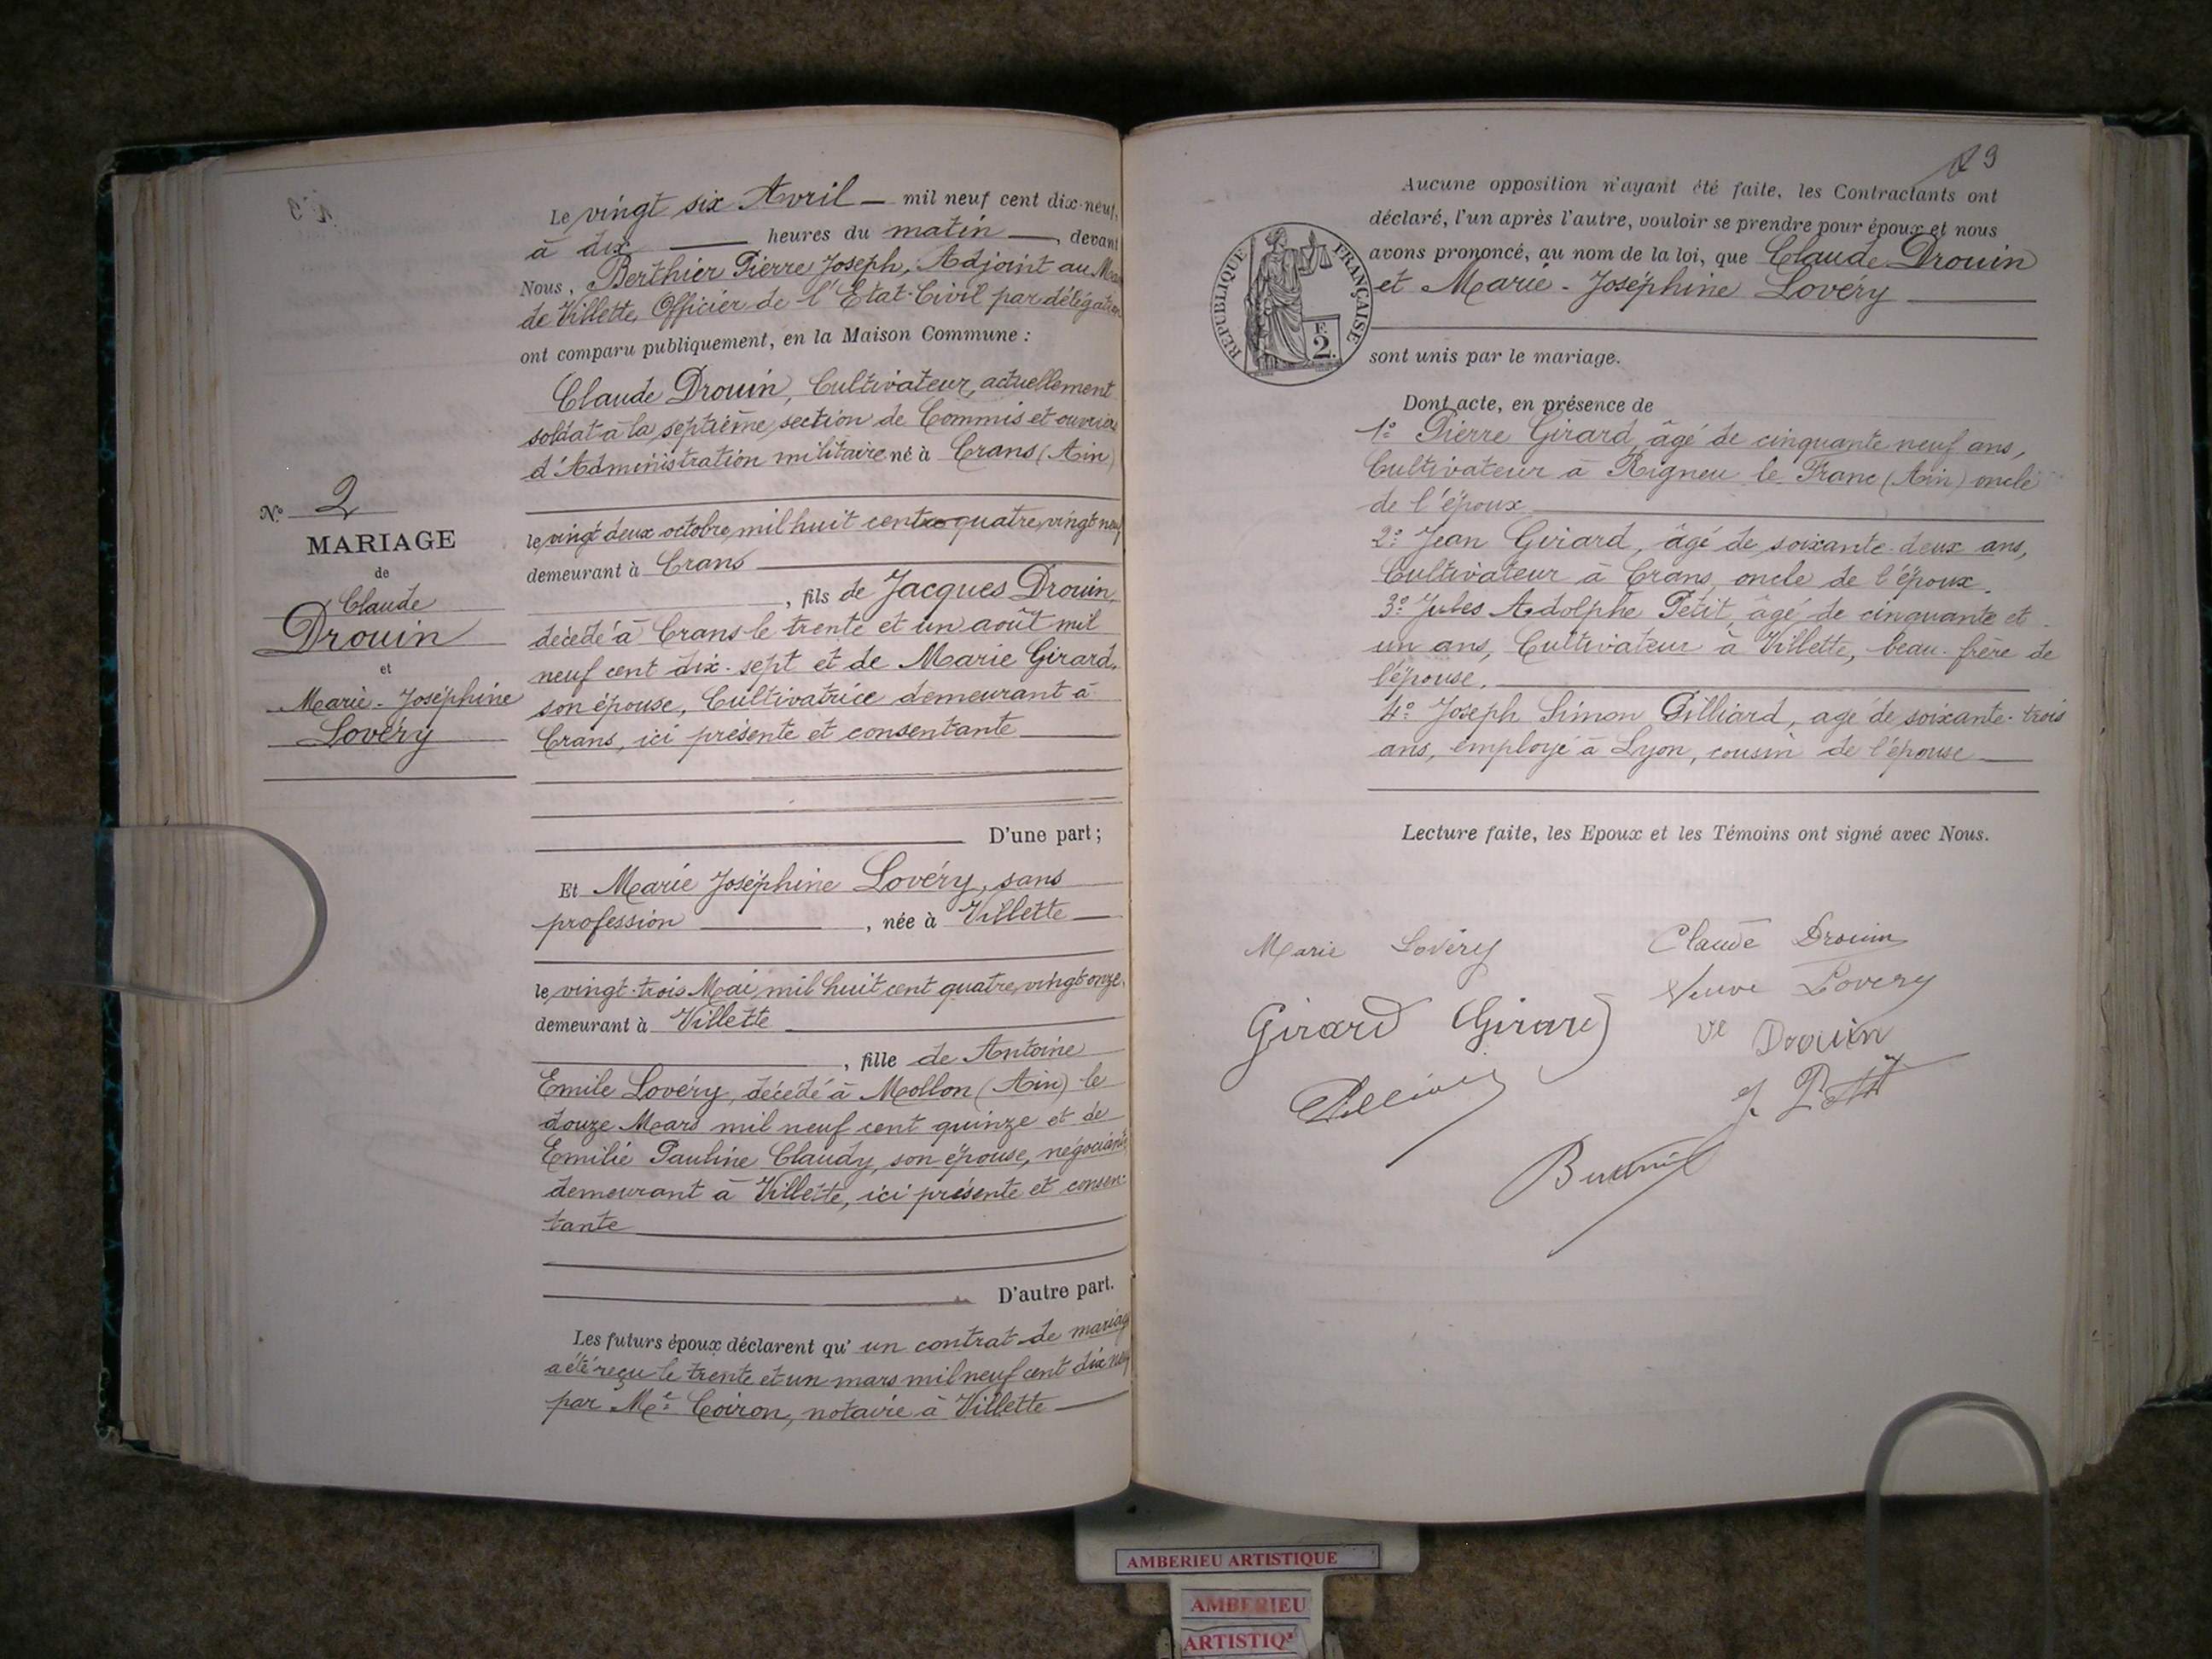 Le vingt six Avril — mil neuf cent dix-neuf,
à dix — heures du matin —, devant
Nous, Berthier Pierre Joseph, Adjoint au
de Villette, Officier de l'Etat-Civil par délégation
ont comparu publiquement, en la Maison Commune :
Claude Drouin, Cultivateur, actuellement
soldat à la septième section de Commis et ouvriers
d'Administration militaire né à Crans (Ain)
le vingt deux octobre mil huit cent quatre vingt neuf
demeurant à Crans
, fils de Jacques Drouin,
décédé à Crans le trente et un août mil
neuf cent dix-sept et de Marie Girard,
son épouse, Cultivatrice demeurant à
Crans, ici présente et consentante
D'une part ;
Et Marie Joséphine Lovéry, sans
profession , née à Villette
le vingt-trois Mai mil huit cent quatre vingt onze,
demeurant à Villette
, fille de Antoine
Emile Lovéry, décédé à Mollon (Ain) le
douze Mars mil neuf cent quinze et de
Emilie Pauline Claudy, son épouse, négociante
demeurant à Villette, ici présente et consen-
tante
D'autre part.
Les futurs époux déclarent qu' un contrat de mariage
a été reçu le trente et un mars mil neuf cent dix neuf
par Me Coiron, notaire à Villette
No 2
MARIAGE
de
Claude
Drouin
et
Marie-Joséphine
Lovéry
Aucune opposition n'ayant été faite, les Contractants ont
déclaré, l'un après l'autre, vouloir se prendre pour époux et nous
avons prononcé, au nom de la loi, que Claude Drouin
et Marie-Joséphine Lovéry
sont unis par le mariage.
RÉPUBLIQUE FRANÇAISE
F.
2.
Dont acte, en présence de
1° Pierre Girard, âgé de cinquante neuf ans,
Cultivateur à Rigneu le Franc (Ain) oncle
de l'époux
2° Jean Girard, âgé de soixante-deux ans,
Cultivateur à Crans, oncle de l'époux.
3° Jules Adolphe Petit, âgé de cinquante et
un ans, Cultivateur à Villette, beau-frère de
l'épouse.
4° Joseph Simon Gilliard, agé de soixante-trois
ans, employé à Lyon, cousin de l'épouse
Lecture faite, les Epoux et les Témoins ont signé avec Nous.
Marie Lovéry Claude Drouin
Veuve Lovery
Girard Girard Ve Drouin
J. Petit
AMBERIEU ARTISTIQUE
AMBERIEU